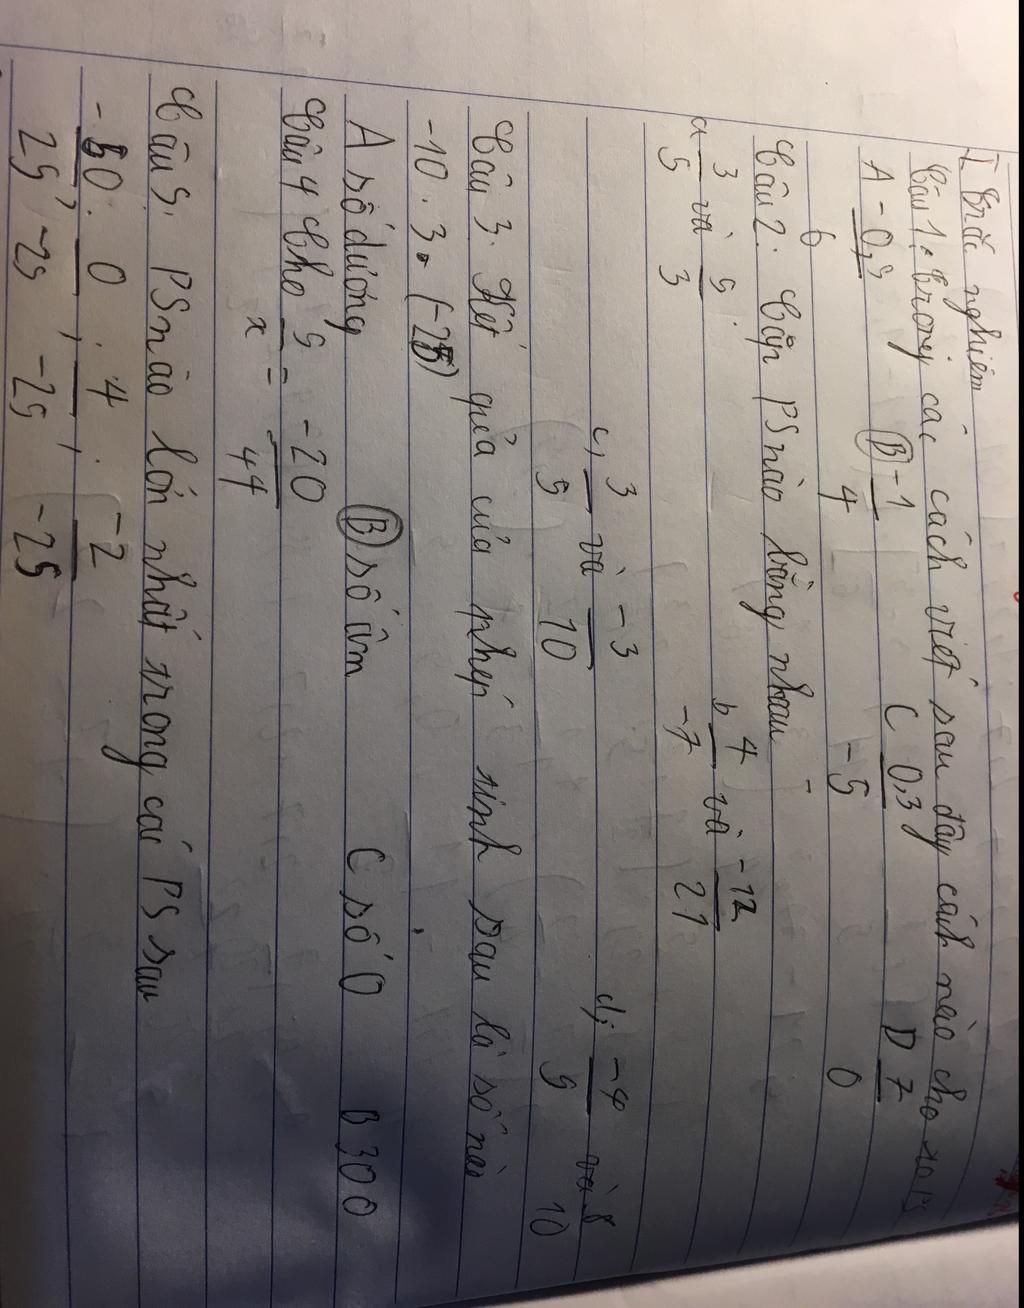 I. Trắc nghiệm
Câu 1: Trong các cách viết sau đây cách nào cho ta PS
A -0,5/6 (B) -1/4 C 0,3/-5 D 7/0
Câu 2: Cặp PS nào bằng nhau
a 3/5 và 5/3. b 4/-7 và -12/21
c, 3/5 và -3/10 d, -4/5 và 8/10
Câu 3. Kết quả của phép tính sau là số nào
-10 . 3 . (-2)
A số dương (B) số âm C số 0 B 300
Câu 4 Cho 5/x = -20/44
Câu 5. PS nào lớn nhất trong các PS sau
-50/25, 0/-25, 4/-25, -2/-25